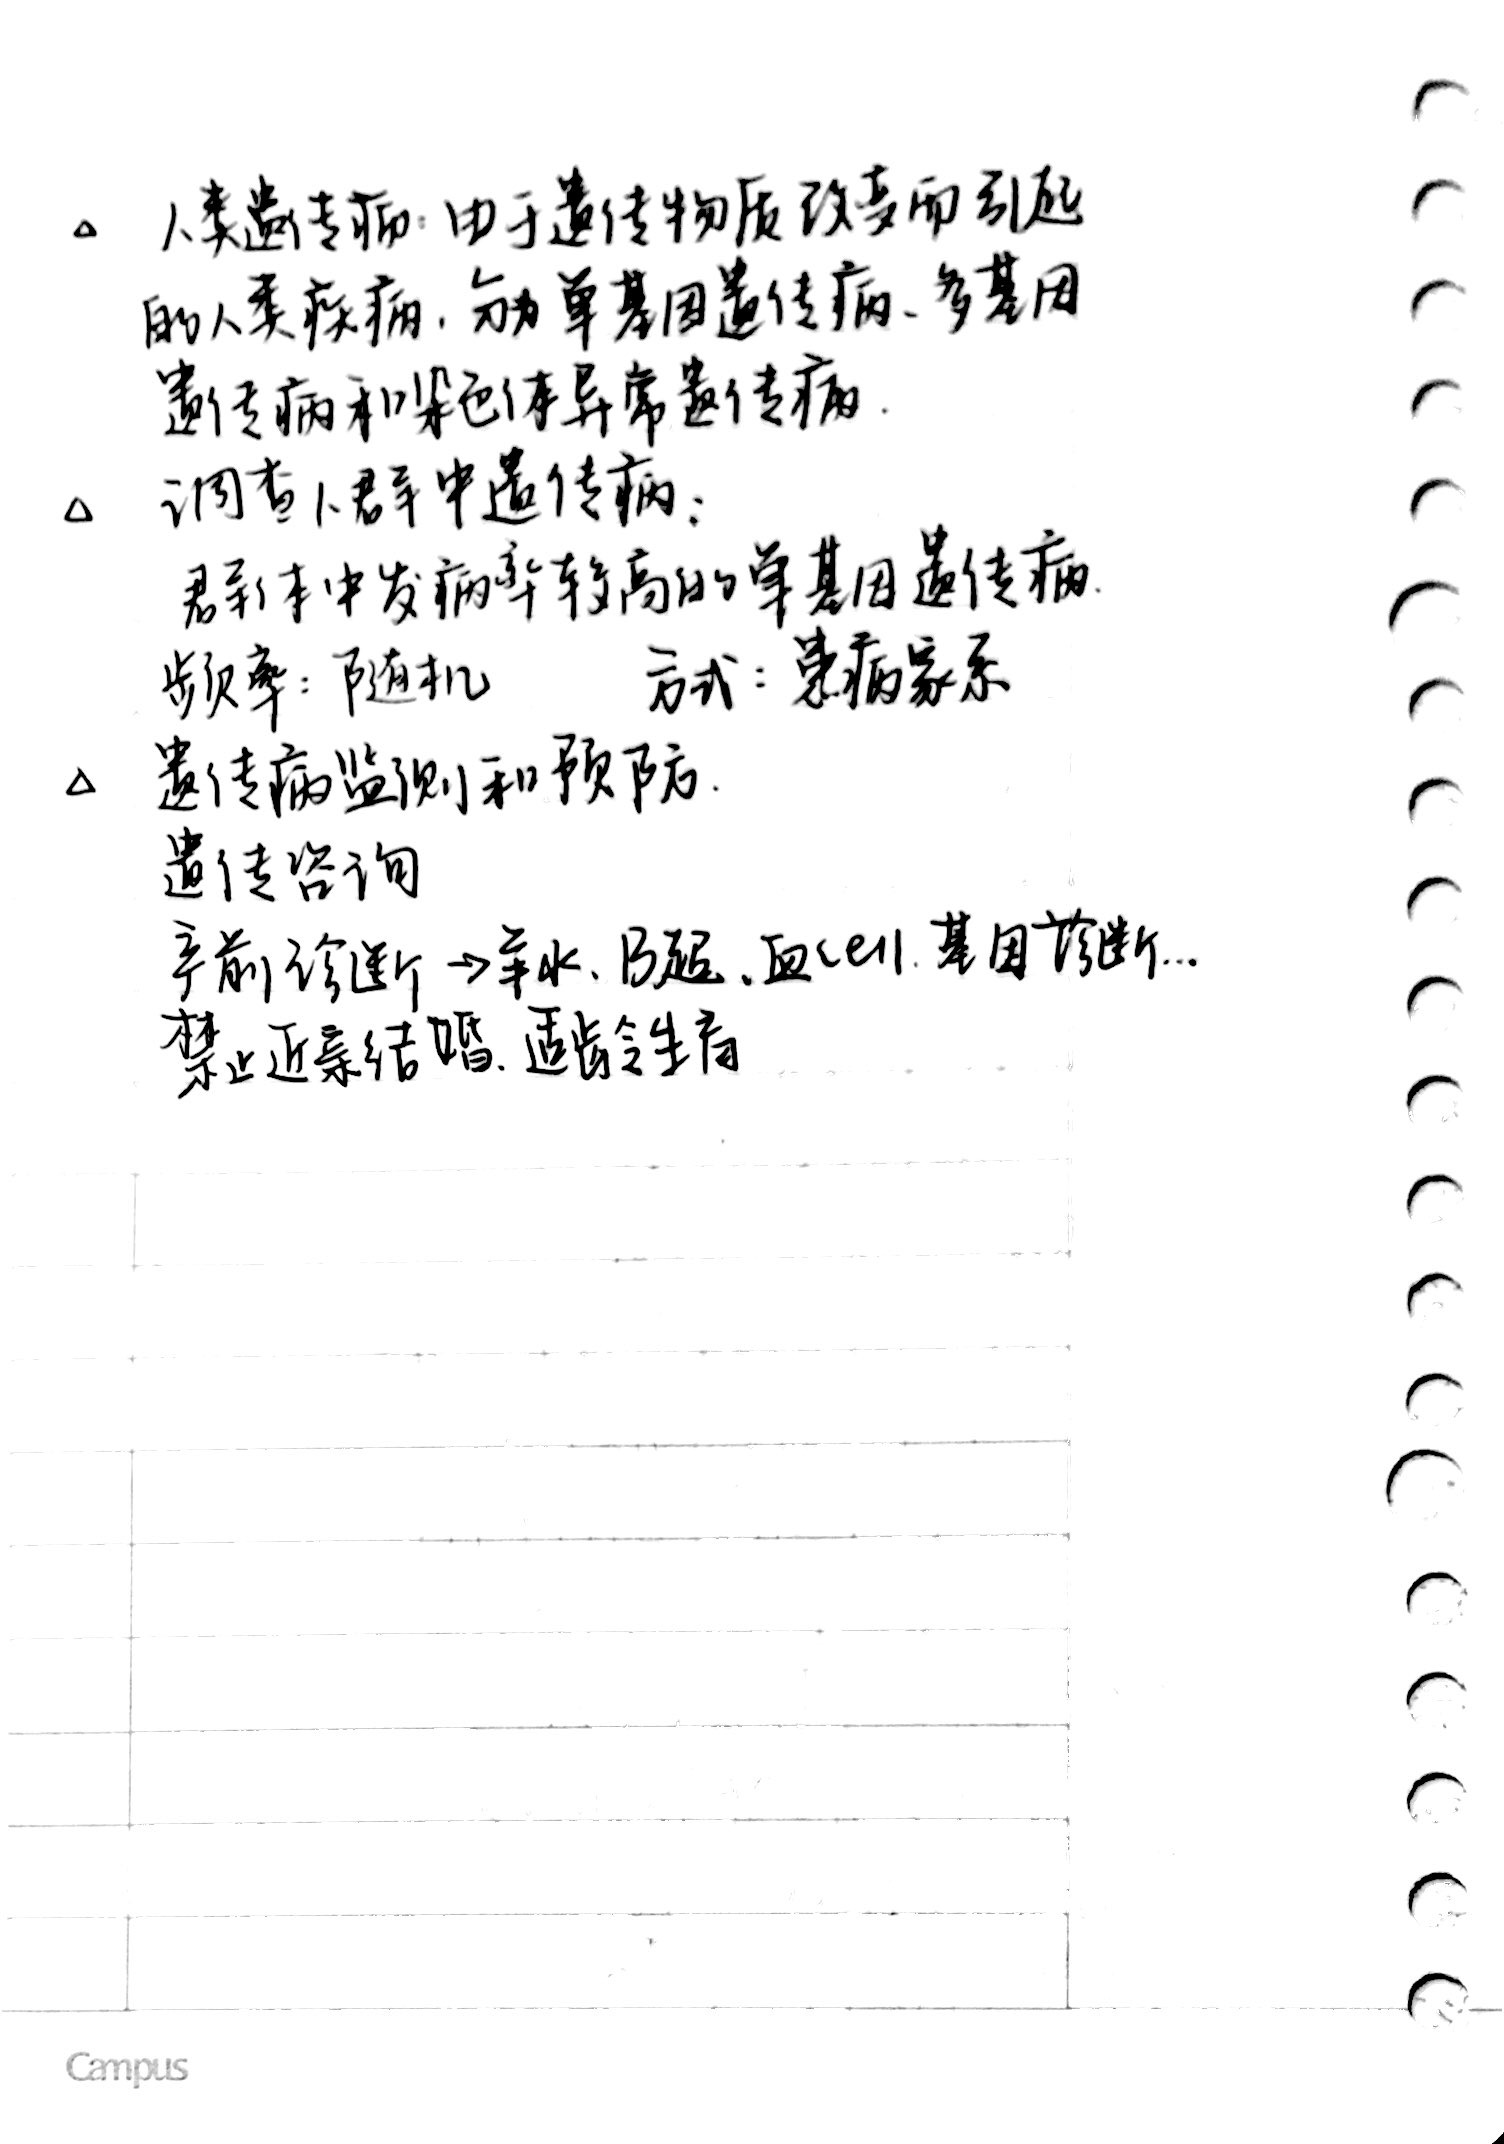 △ 人类遗传病：由于遗传物质改变而引起
的人类疾病，分为单基因遗传病、多基因
遗传病和染色体异常遗传病．
△ 调查人群中遗传病：
群体中发病率较高的单基因遗传病．
频率：随机 方式：患病家系
△ 遗传病监测和预防．
遗传咨询
产前诊断→羊水、B超、血cell．基因诊断…
禁止近亲结婚．适龄生育
Campus